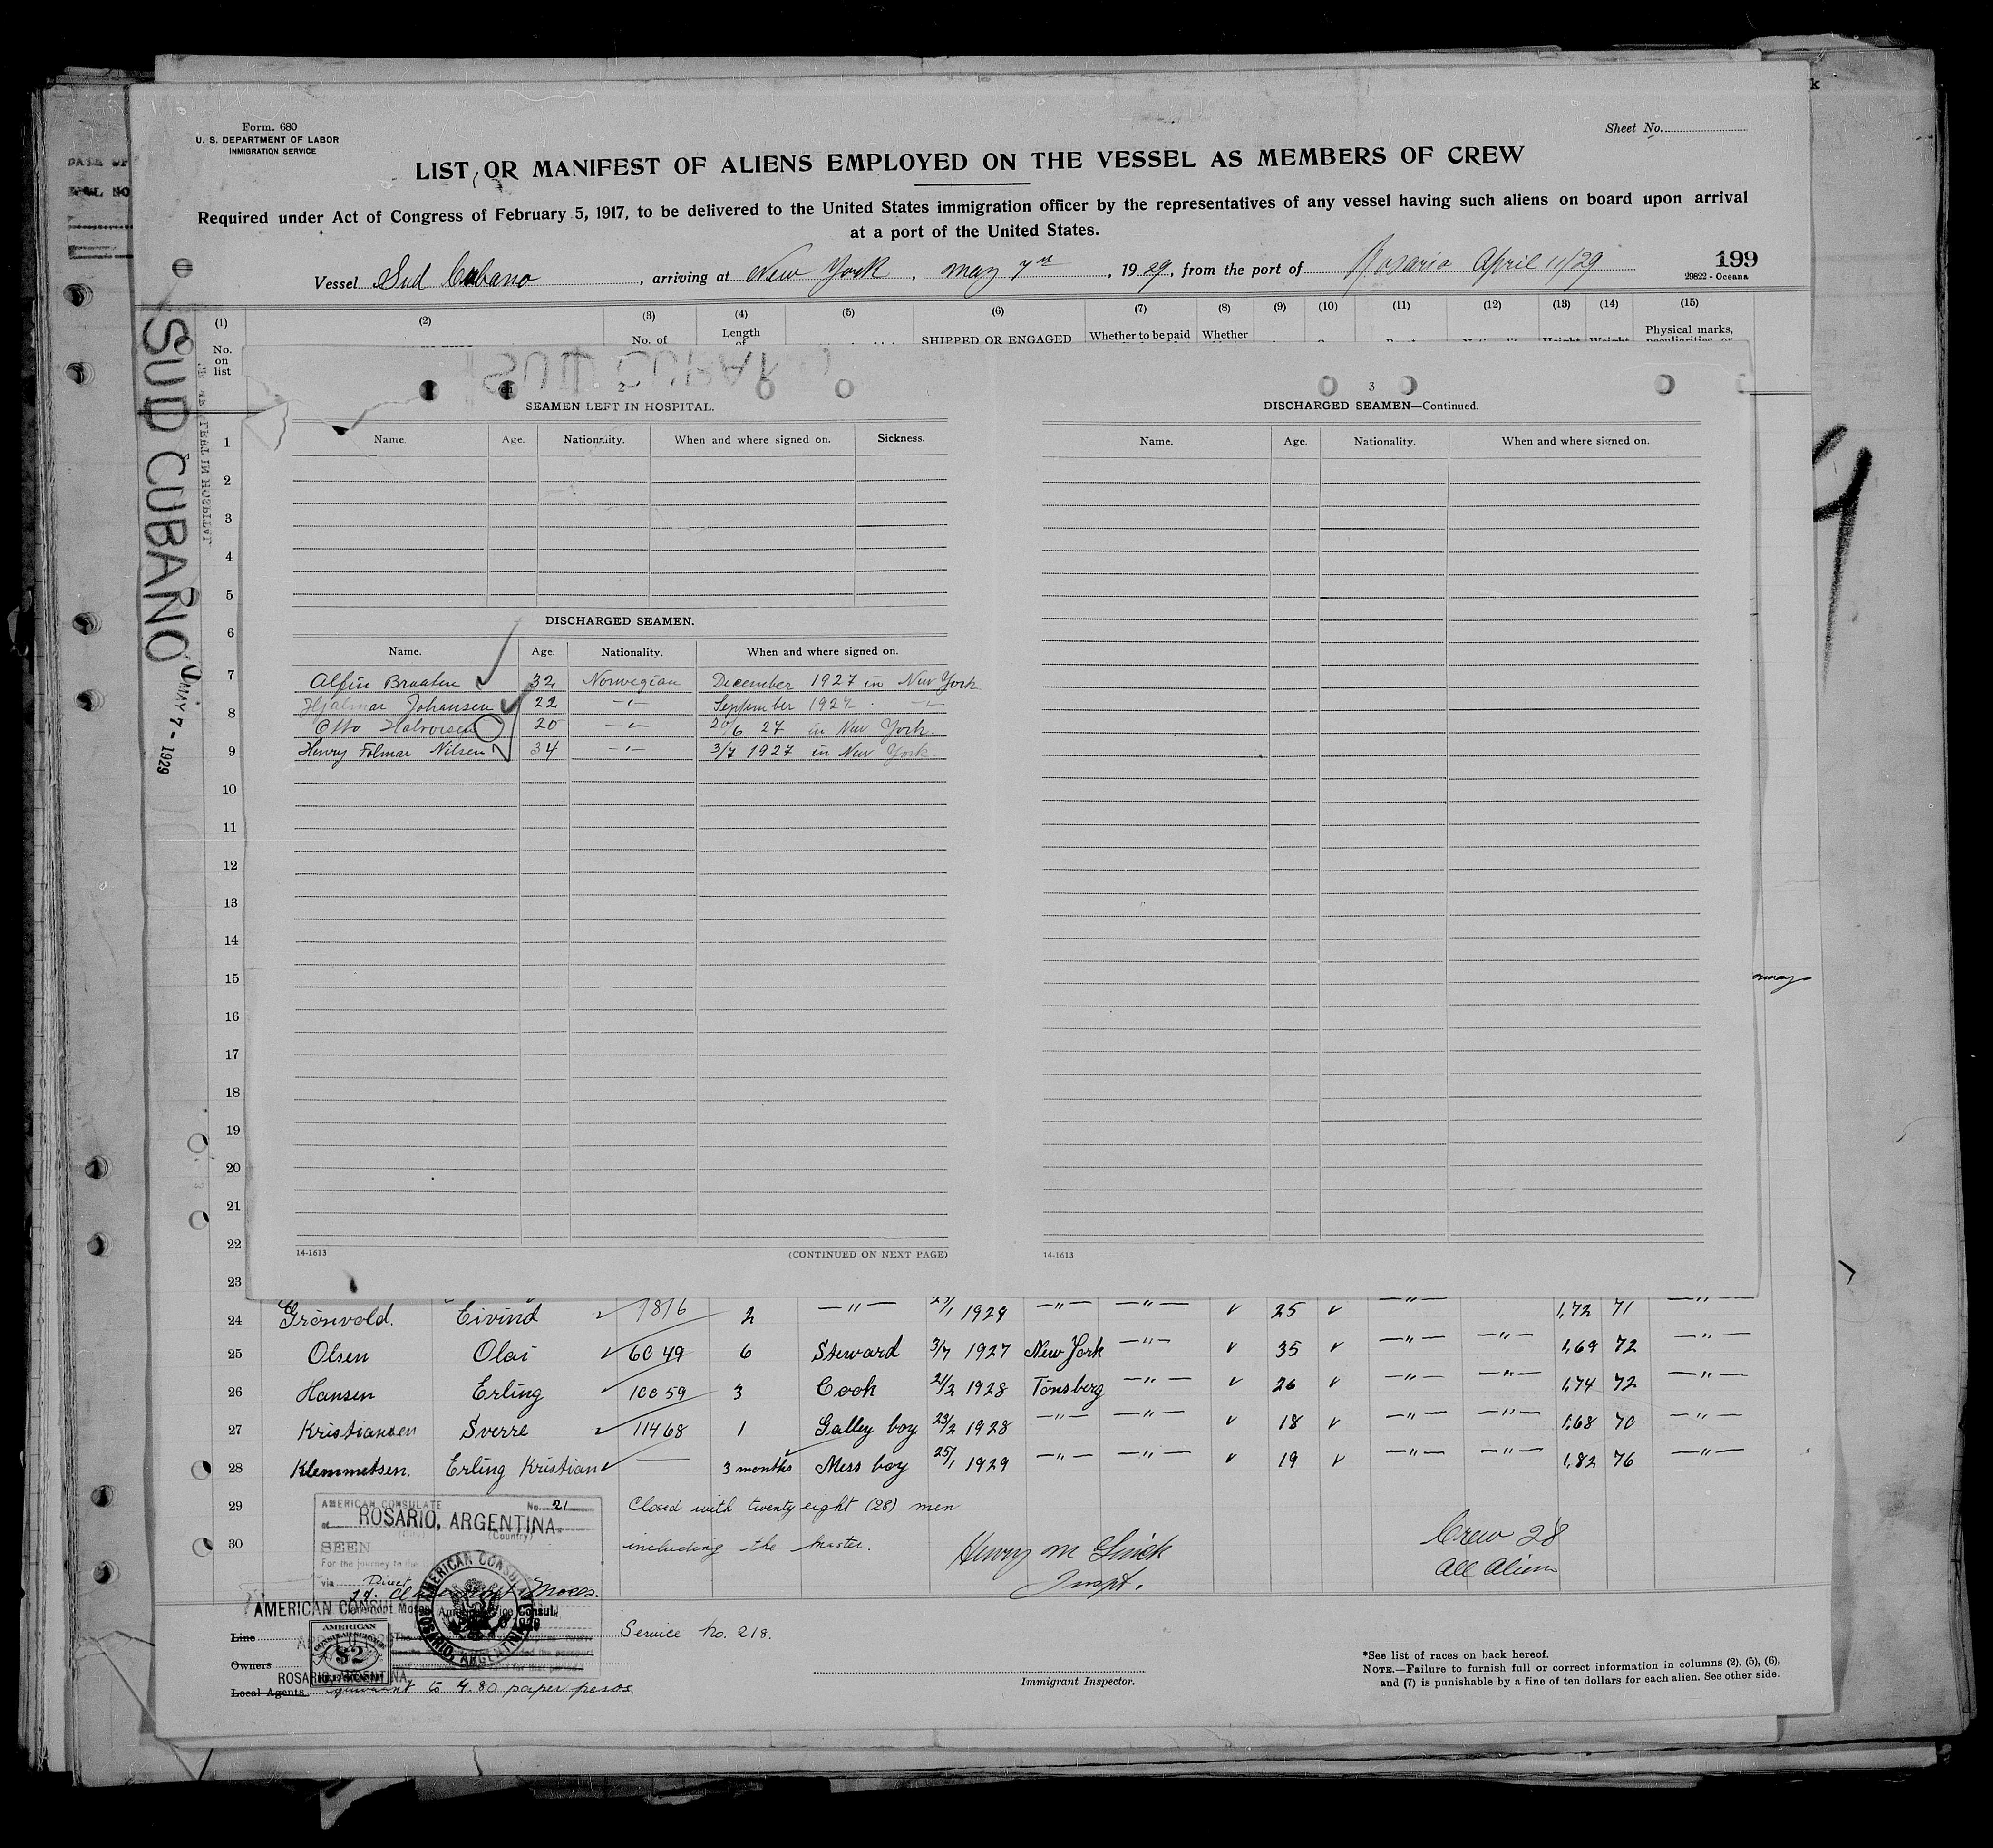 Form. 680
U. S. DEPARTMENT OF LABOR
INMIGRATION SERVICE
Sheet No.
LIST OR MANIFEST OF ALIENS EMPLOYED ON THE VESSEL AS MEMBERS OF CREW
Required under Act of Congress of February 5, 1917, to be delivered to the United States immigration officer by the representatives of any vessel having such aliens on board upon arrival
at a port of the United States.
Vessel Sud Cubano, arriving at New York, May 7th, 1929, from the port of Rosario April 11/29
199
29822 - Oceana
SUD CUBANO
MAY 7 - 1929
(1) (2) (3) (4) (5) (6) (7) (8) (9) (10) (11) (12) (13) (14) (15)
No. on list
No. of
Length of
SHIPPED OR ENGAGED
Whether to be paid
Whether
Height Weight
Physical marks, peculiarities, or
2
SEAMEN LEFT IN HOSPITAL.
Name. Age. Nationality. When and where signed on. Sickness.
DISCHARGED SEAMEN.
Name. Age. Nationality. When and where signed on.
Alfin Braaten 32 Norwegian December 1927 in New York
Hjalmar Johansen 22 -"- September 1927 -"-
Otto Halvorsen 20 -"- 20/6 27 in New York.
Henry Folmar Nilsen 34 -"- 3/7 1927 in New York
14-1613
(CONTINUED ON NEXT PAGE)
3
DISCHARGED SEAMEN—Continued.
Name. Age. Nationality. When and where signed on.
14-1613
1
2
3
4
5
6
7
8
9
10
11
12
13
14
15
16
17
18
19
20
21
22
23
24 Grönvold. Eivind 7816 2 -"- 1929 -"- -"- v 25 v -"- 1,72 71 -"-
25 Olsen Olai 6049 6 Steward 3/7 1927 New York -"- v 35 v -"- -"- 1,69 72 -"-
26 Hansen Erling 10059 3 Cook 21/2 1928 Tönsberg -"- v 26 v -"- -"- 1,74 72 -"-
27 Kristiansen Sverre 11468 1 Galley boy 23/2 1928 -"- -"- v 18 v -"- -"- 1,68 70 -"-
28 Klemmetsen. Erling Kristian — 3 months Mess boy 25/1 1929 -"- -"- v 19 v -"- -"- 1,82 76 -"-
29 Closed with twenty eight (28) men
30 including the Master.
Henry M
Inspt.
Crew 28
All Aliens
AMERICAN CONSULATE No. 21
at ROSARIO, ARGENTINA.
(Country)
SEEN
For the journey to the
via Direct
AMERICAN CONSULATE
ROSARIO, ARGENTINA
AMERICAN
CONSULAR SERVICE
$2
ROSARIO, ARGENTINA
Line
Owners
Local Agents
to 4.80 paper pesos.
Service No. 218.
Immigrant Inspector.
*See list of races on back hereof.
NOTE.—Failure to furnish full or correct information in columns (2), (5), (6),
and (7) is punishable by a fine of ten dollars for each alien. See other side.